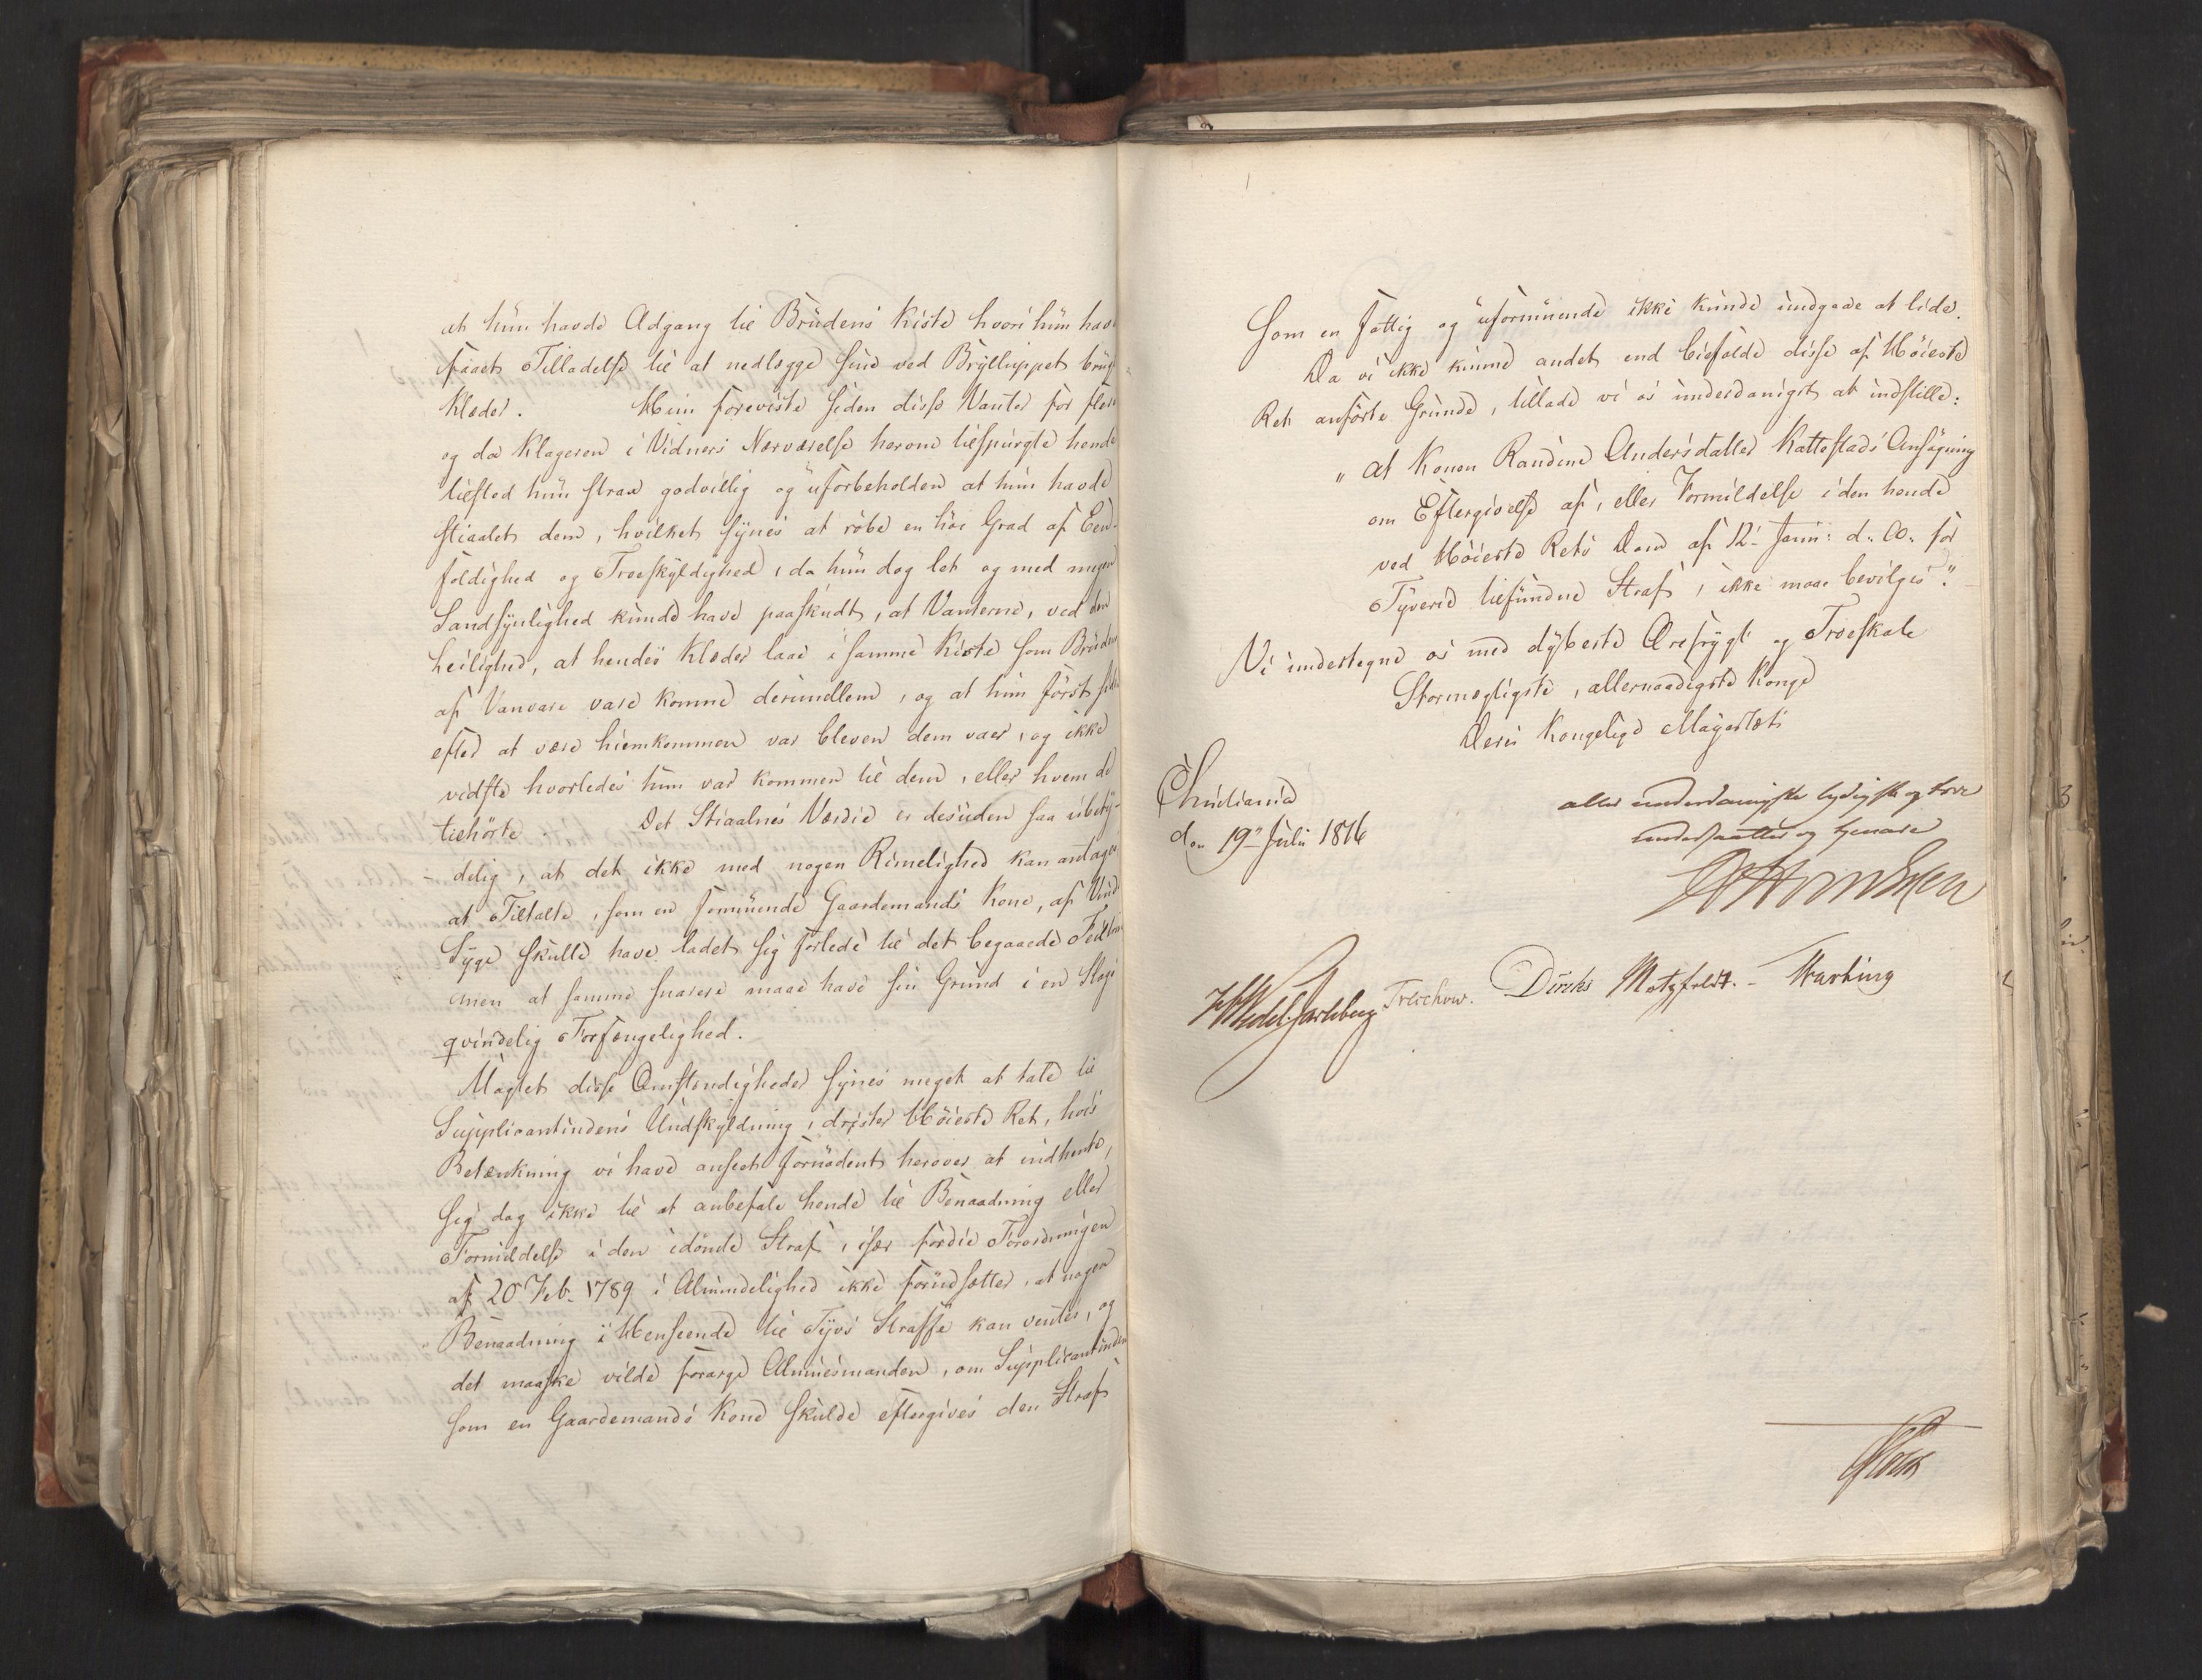 at hun havde Adgang til Brudens Kiste hvori hun hav
faaet Tilladelse til at nedlægge sine ved Brylluppet brug
Klæder. Hun foreviste siden disse Vanter for flere
og da Klageren i Vidners Nærværelse herom tilspurgte hende
tilstod hun strax godvillig og uforbeholden at hun havde
stiaalet dem, hvilket synes at røbe en høi Grad af Een-
foldighed og Troeskyldighed, da hun dog let og med megen
Sandsynlighed kunde have paaskudt, at Vanterne, ved den
Leilighed, at hendes Klæder laae i samme Kiste som Brudens
af Vanvare vare komne derimellem, og at hun først siden
efter at være hiemkommen var bleven dem vaer, og ikke
vidste hvorledes hun var kommen til dem, eller hvem de
tilhørte. Det Stiaalnes Værdie er desuden saa ubety-
delig, at det ikke med nogen Rimelighed kan antages
at Tiltalte, som en formuende Gaardemands Kone, af Vind
Syge skulle have ladet sig forlede til det begaaede Feiltrin
men at samme snarere maae have sin Grund i en Slags
qvindelig Forfængelighed.
Uagtet disse Omstændigheder synes meget at tale til
Supplicantindens Undskyldning, drister Høieste Ret, hvis
Betænkning vi have anseet fornødent herover at indhente,
sig dog ikke til at anbefale hende til Benaadning eller
Formildelse i den idømte Straf, især fordie Forordningen
af 20 Feb. 1789 i Almindelighed ikke forudsætter, at nogen
Benaadning i Henseende til Tyvs Straffe kan ventes, og
det maaske vilde forarge Almuesmanden, om Supplicantinden
som en Gaardemands Kone skulde eftergives den Straf
som en fattig og uformuende ikke kunde undgaae at lide.
Da vi ikke kunne andet end biefalde disse af Høieste
Ret anførte Grunde, tillade vi os underdanigst at indstille:
„ at Konen Randine Andersdatter Kattestads Ansøgning
om Eftergivelse af, eller Formildelse i den hende
ved Høieste Rets Dom af 12te Janu: d. A. for
Tyverie tilfundne Straf, ikke maae bevilges."
Vi undertegne os med dybeste Ærefrygt og Troeskab
Stormægtigste, allernaadigste Konge
Deres Kongelige Majestæts
Christiania
den 19de Juli 1816
aller underdanigste lydigste og troe
undersaatter og tjenare
HWedel-Jarlsberg Treschow. Diriks Motzfeldt. - Krarting